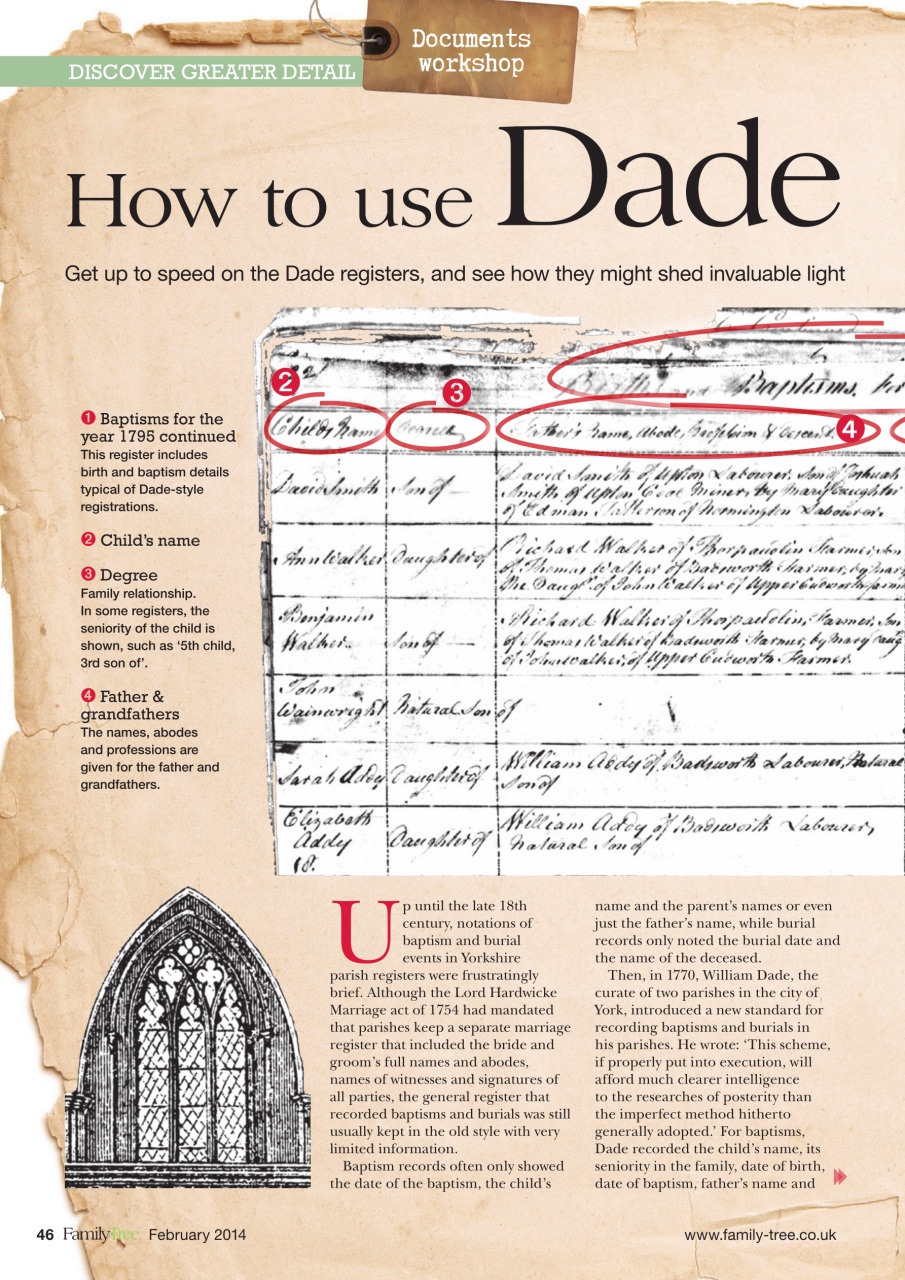 Documents
workshop
DISCOVER GREATER DETAIL
How to use Dade
Get up to speed on the Dade registers, and see how they might shed invaluable light
1 Baptisms for the
year 1795 continued
This register includes
birth and baptism details
typical of Dade-style
registrations.
2 Child's name
3 Degree
Family relationship.
In some registers, the
seniority of the child is
shown, such as '5th child,
3rd son of'.
4 Father &
grandfathers
The names, abodes
and professions are
given for the father and
grandfathers.
2
3
4
Births and Baptisms. for
Childs Name
Father's Name, Abode, Profession & Descent.
David Smith Son of
David Smith of Upton Labourer, Son of Joshuah
Smith of Upton Coal Miner, by Mary Daughter
of Edman Tallerson of Normington Labourer.
Ann Walker Daughter of
Richard Walker of Thorpaudlin Farmer, Son
of Thomas Walker of Badsworth Farmer, by Mary
the Daugr. of John Walker of Upper Cudworth
Benjamin
Walker Son of
Richard Walker of Thorpaudlin, Farmer, Son
of Thomas Walker of Badsworth Farmer, by Mary Daug
of John Walker, of Upper Cudworth Farmer.
John
Wainwright Natural Son of
Sarah Addy Daughter of
William Addy of Badsworth Labourer, Natural
Son of
Elizabeth
Addy Daughter of
18.
William Addy of Badsworth Labourer,
Natural Son of
Up until the late 18th
century, notations of
baptism and burial
events in Yorkshire
parish registers were frustratingly
brief. Although the Lord Hardwicke
Marriage act of 1754 had mandated
that parishes keep a separate marriage
register that included the bride and
groom's full names and abodes,
names of witnesses and signatures of
all parties, the general register that
recorded baptisms and burials was still
usually kept in the old style with very
limited information.
Baptism records often only showed
the date of the baptism, the child's
name and the parent's names or even
just the father's name, while burial
records only noted the burial date and
the name of the deceased.
Then, in 1770, William Dade, the
curate of two parishes in the city of
York, introduced a new standard for
recording baptisms and burials in
his parishes. He wrote: 'This scheme,
if properly put into execution, will
afford much clearer intelligence
to the researches of posterity than
the imperfect method hitherto
generally adopted.' For baptisms,
Dade recorded the child's name, its
seniority in the family, date of birth,
date of baptism, father's name and
46 FamilyTree February 2014
www.family-tree.co.uk